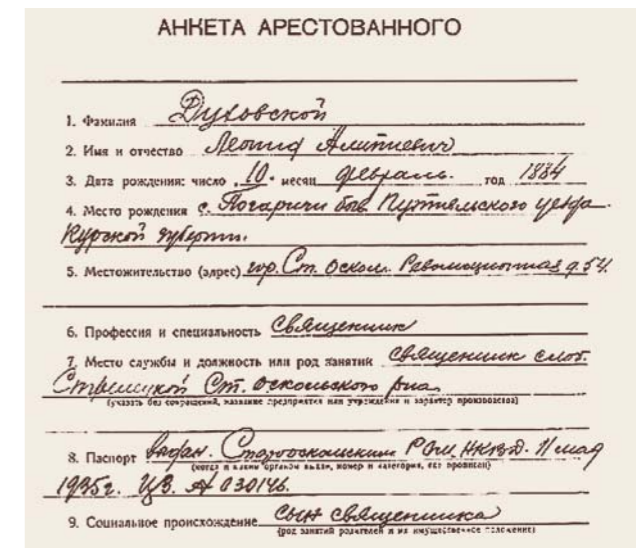 АНКЕТА АРЕСТОВАННОГО
1. Фамилия Духовской
2. Имя и отчество Леонид Алипиевич
3. Дата рождения: число 10. месяц февраль. год 1884
4. Место рождения с. Погаричи быв. Путивльского уезда
Курской губернии.
5. Местожительство (адрес) гор. Ст. Оскол. Революционная д. 54.
6. Профессия и специальность Священник
7. Место службы и должность или род занятий Священник слоб.
Стрелецкой Ст. Оскольского р-на
(указать без сокращений, название предприятия или учреждения и характер производства)
8. Паспорт выдан. Старооскольским РОМ НКВД. 11 мая
(когда и каким органом выдан, номер и категория, где прописан)
1935г. ЦЗ. № 030146.
9. Социальное происхождение Сын священника
(род занятий родителей и их имущественное положение)